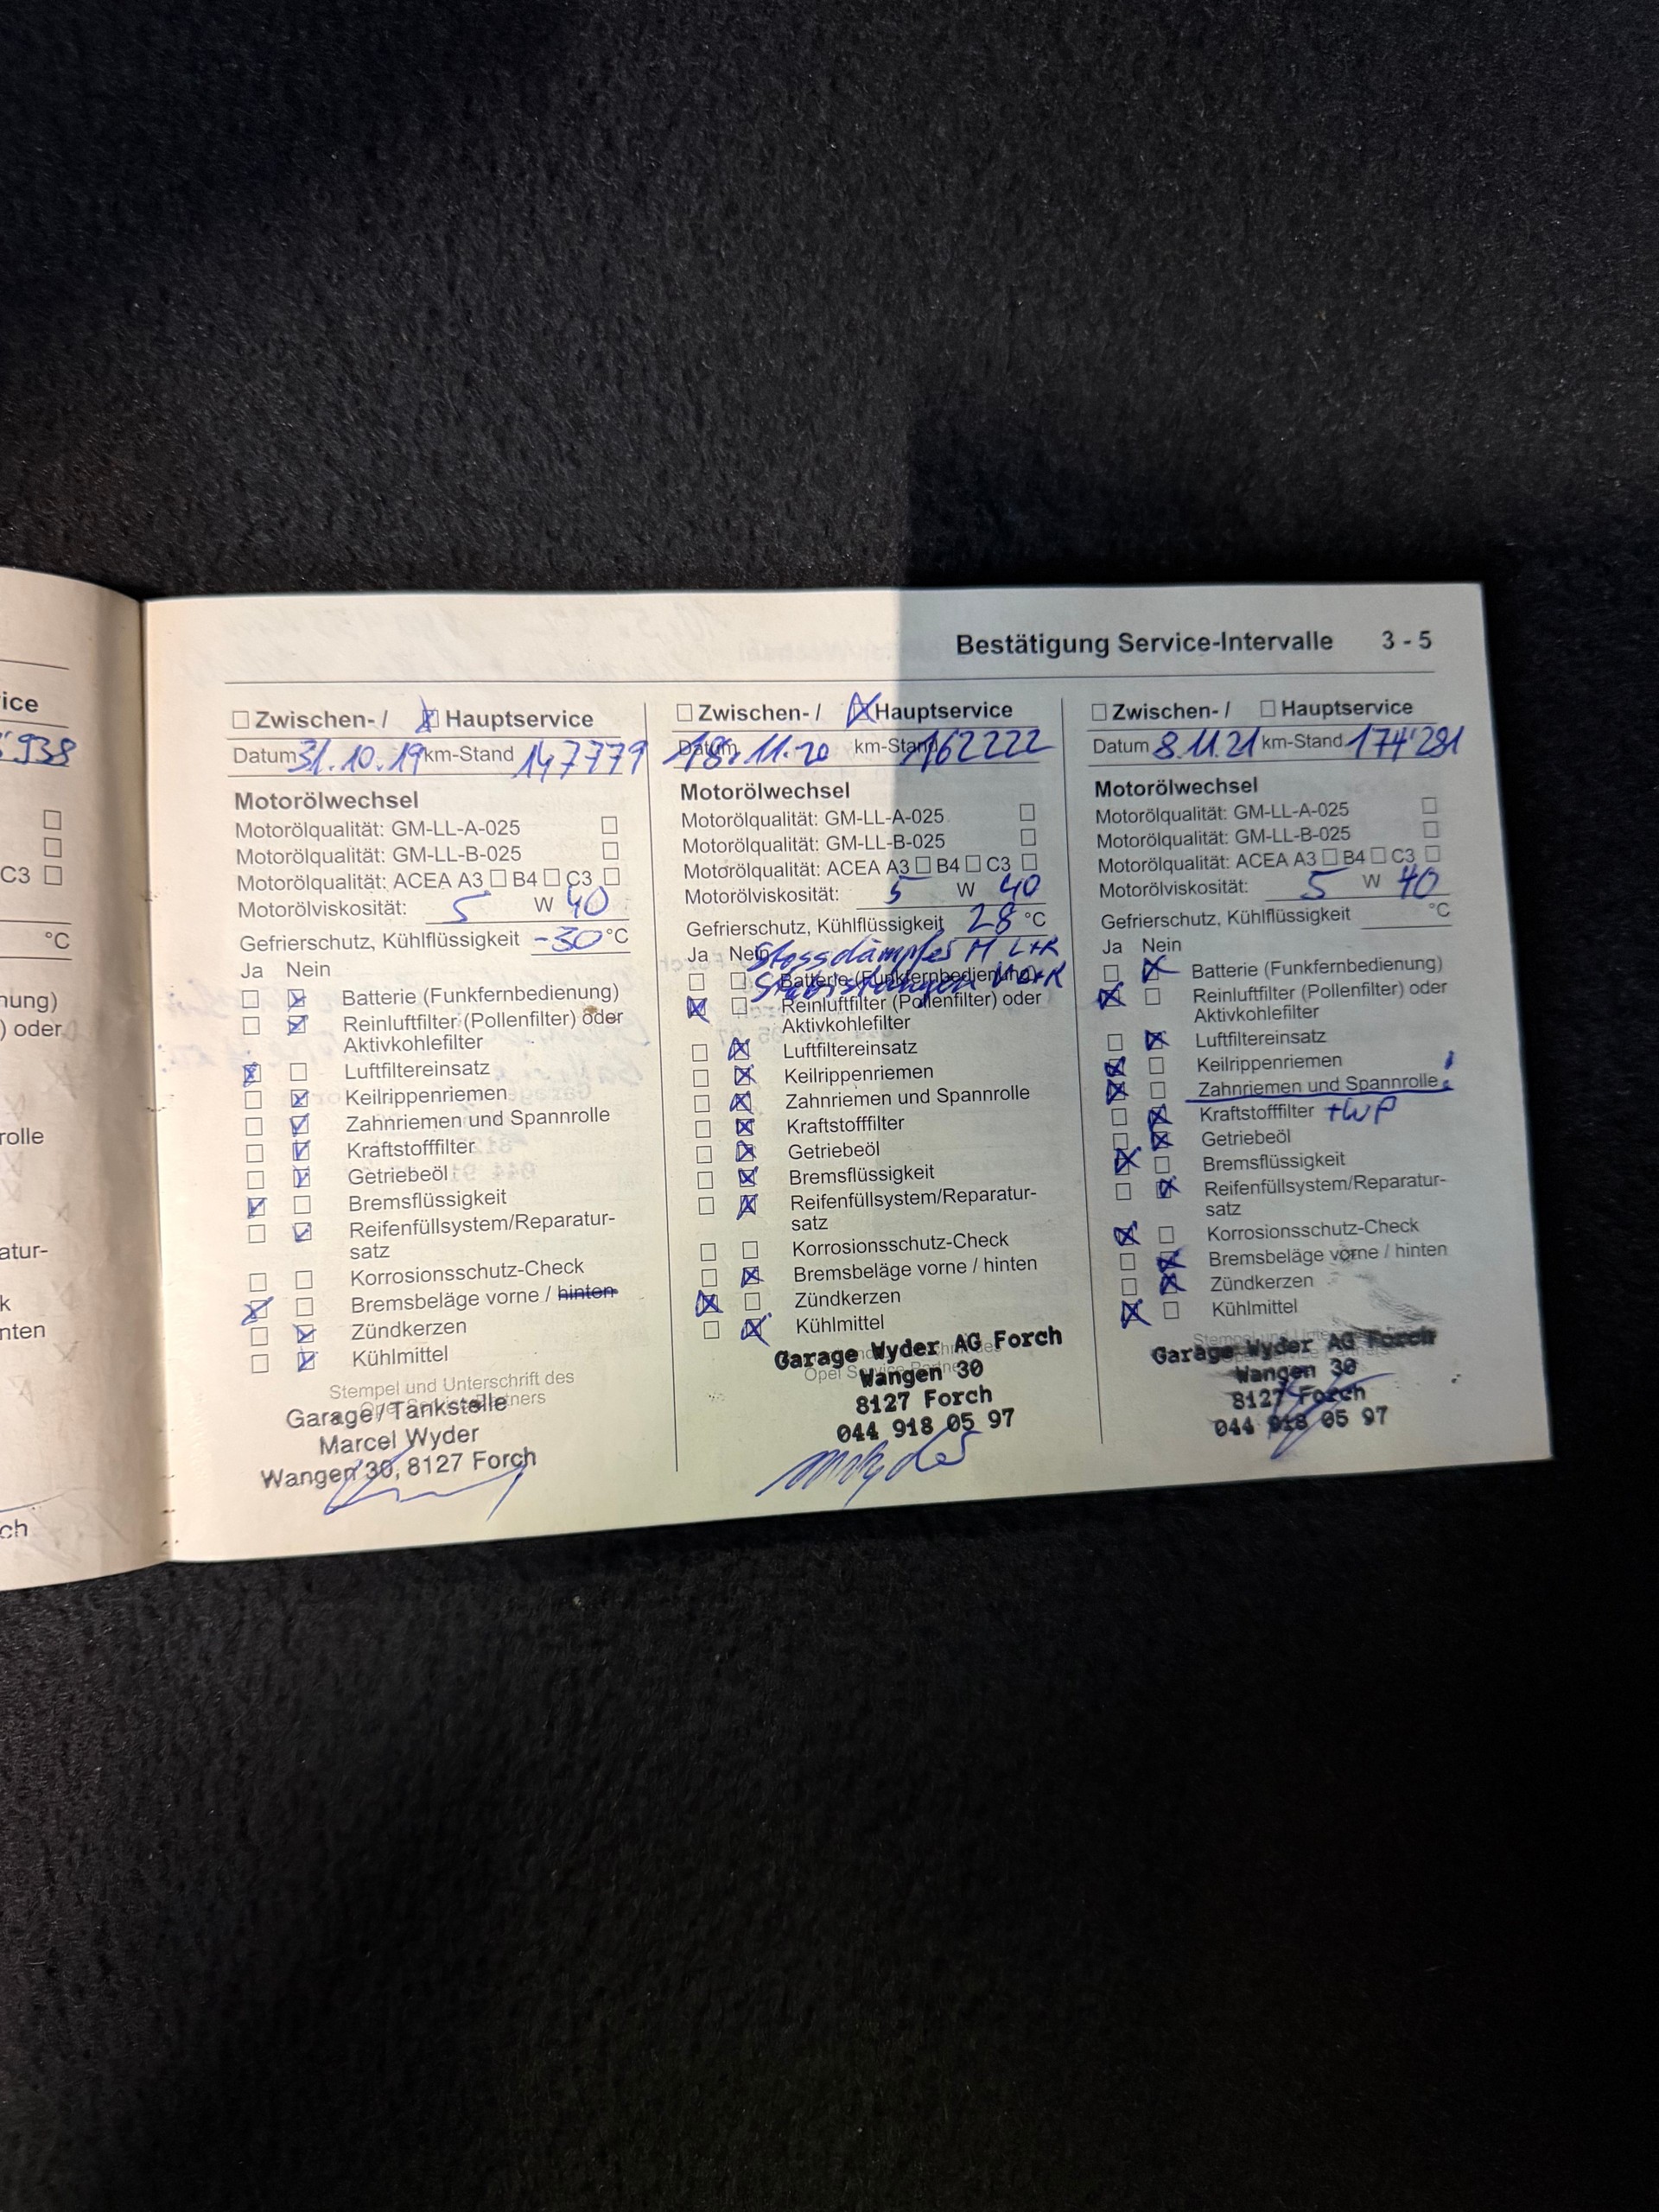 ice
938
C3
°C
nung)
) oder
rolle
atur-
k
nten
ch
Bestätigung Service-Intervalle 3 - 5
Zwischen- / Hauptservice
Datum 31.10.19 km-Stand 147779
Motorölwechsel
Motorölqualität: GM-LL-A-025
Motorölqualität: GM-LL-B-025
Motorölqualität: ACEA A3 B4 C3
Motorölviskosität: 5 W 40
Gefrierschutz, Kühlflüssigkeit -30 °C
Ja Nein
Batterie (Funkfernbedienung)
Reinluftfilter (Pollenfilter) oder
Aktivkohlefilter
Luftfiltereinsatz
Keilrippenriemen
Zahnriemen und Spannrolle
Kraftstofffilter
Getriebeöl
Bremsflüssigkeit
Reifenfüllsystem/Reparatur-
satz
Korrosionsschutz-Check
Bremsbeläge vorne / hinten
Zündkerzen
Kühlmittel
Stempel und Unterschrift des
Opel Service Partners
Garage / Tankstelle
Marcel Wyder
Wangen 30, 8127 Forch
Zwischen- / Hauptservice
Datum 18.11.20 km-Stand 162222
Motorölwechsel
Motorölqualität: GM-LL-A-025
Motorölqualität: GM-LL-B-025
Motorölqualität: ACEA A3 B4 C3
Motorölviskosität: 5 W 40
Gefrierschutz, Kühlflüssigkeit 28 °C
Ja Nein Stossdämpfer H L+R
Batterie (Funkfernbedienung)
Reinluftfilter (Pollenfilter) oder
Aktivkohlefilter
Luftfiltereinsatz
Keilrippenriemen
Zahnriemen und Spannrolle
Kraftstofffilter
Getriebeöl
Bremsflüssigkeit
Reifenfüllsystem/Reparatur-
satz
Korrosionsschutz-Check
Bremsbeläge vorne / hinten
Zündkerzen
Kühlmittel
Garage Wyder AG Forch
Wangen 30
8127 Forch
044 918 05 97
Zwischen- / Hauptservice
Datum 8.11.21 km-Stand 174'281
Motorölwechsel
Motorölqualität: GM-LL-A-025
Motorölqualität: GM-LL-B-025
Motorölqualität: ACEA A3 B4 C3
Motorölviskosität: 5 W 40
Gefrierschutz, Kühlflüssigkeit °C
Ja Nein
Batterie (Funkfernbedienung)
Reinluftfilter (Pollenfilter) oder
Aktivkohlefilter
Luftfiltereinsatz
Keilrippenriemen
Zahnriemen und Spannrolle !
Kraftstofffilter +WP
Getriebeöl
Bremsflüssigkeit
Reifenfüllsystem/Reparatur-
satz
Korrosionsschutz-Check
Bremsbeläge vorne / hinten
Zündkerzen
Kühlmittel
Garage Wyder AG Forch
Wangen 30
8127 Forch
044 918 05 97